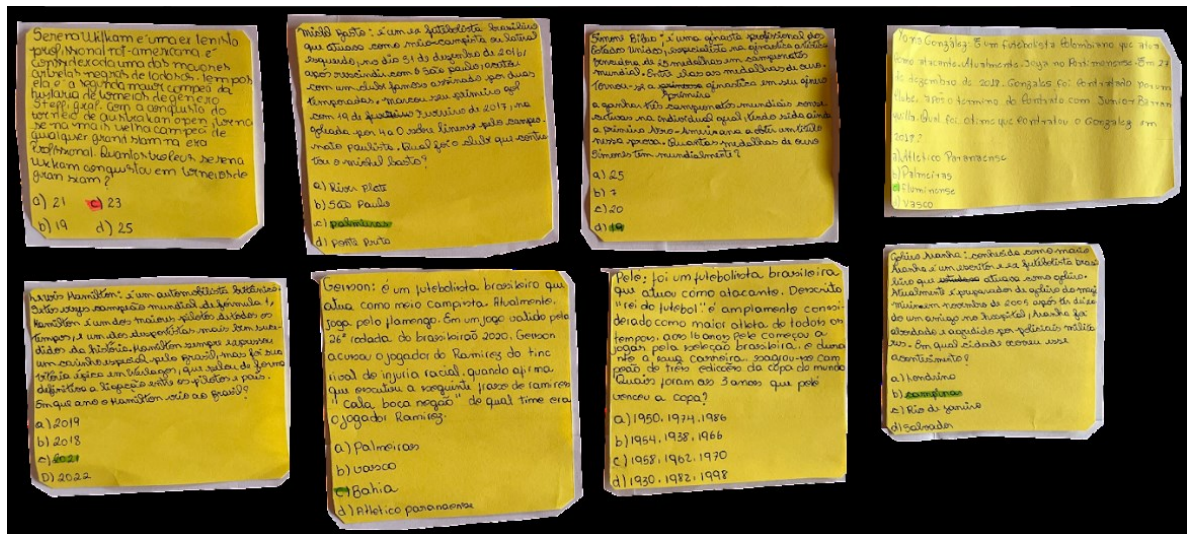 Serena Williams é uma ex tenista
profissional
considerada uma das maiores
atletas negras de todos os tempos
ela é a segunda maior campeã da
história de torneios de gênero
Steffi graf. Com a conquista do
torneio de australian open, Serena
se na mais velha campeã de
qualquer grand slam na era
profissional. Quantos troféus serena
conquistou em torneios de
gran slam?
a) 21 c) 23
b) 19 d) 25
é um ex futebolista brasileiro
que atuava como meio-campista ou lateral
esquerdo, no dia 31 de dezembro de 2016,
após rescindir com o São paulo, acertou
com um clube famoso assinado por duas
temporadas, marcou seu primeiro gol
com 19 de fevereiro de 2017, na
goleada por 4 a 0 sobre linense pelo campeo-
nato paulista. Qual foi o clube que contra
tou o michel basto?
a) River Plate
b) São Paulo
c) palmeiras
d) Ponte Preta
Simone Biles: é uma ginasta profissional dos
Estados Unidos, especialista na ginastica artistica
de 25 medalhas em campeonatos
mundial. Entre elas as medalhas de ouro.
Tornou-se a ginastica em seu gênero
a ganhar três campeonatos mundiais conse-
cutivos na individual geral, sendo ainda
a primeira
nessa prova. Quantas medalhas de ouro
Simones tem mundialmente?
a) 25
b) 7
c) 20
d) 19
González: É um futebolista Colombiano que atua
como atacante. Atualmente joga no Em 27
de dezembro de 2018. Gonzalez foi contratado por um
clube, após o termino do contrato com Junior Barran
quilla. Qual foi o time que contratou o Gonzalez em
2019?
a) Atletico Paranaense
b) Palmeiras
c) Fluminense
d) Vasco
Lewis Hamilton: é um automobilista britânico.
Sete vezes campeão mundial de fórmula 1,
Hamilton é um dos maiores pilotos de todos os
tempos, e um dos desportistas mais bem suce-
didos da história. Hamilton sempre expressou
um carinho especial pelo Brasil, mas foi sua
vitória épica em Interlagos, que selou de forma
definitiva a ligação entre os pilotos e pais.
Em que ano o Hamilton veio ao Brasil?
a) 2019
b) 2018
c) 2021
D) 2022
Gerson: é um futebolista brasileiro que
atua como meio campista. Atualmente,
joga pelo flamengo. Em um jogo valido pela
26ª rodada do brasileirão 2020. Gerson
acusou o jogador do Ramirez do tinc
rival de injuria racial, quando afirma
que escutou a seguinte frase de ramires
"Cala boca negão" de qual time era
o jogador Ramirez.
a) Palmeiras
b) vasco
c) Bahia
d) Atletico paranaense
Pelé: foi um futebolista brasileiro
que atuou como atacante. Descrito
"rei do futebol" é amplamente consi-
derado como maior atleta de todos os
tempos. aos 16 anos Pelé começou a
jogar pela seleção brasileira. e dura
nte a sua carreira. sagrou-se cam
peão de três edicões da copa do mundo
Quais foram as 3 anos que pelé
venceu a copa?
a) 1950, 1974, 1986
b) 1954, 1938, 1966
c) 1958, 1962, 1970
d) 1930, 1982, 1998
Goleiro Aranha: conhecido como mario
Aranha é um escritor e ex futebolista brasi
leiro que atuava como goleiro.
Atualmente é preparador de goleiro do
em novembro de 2005, após ter deixa
do um amigo no hospital, Aranha foi
abordado e agredido por policiais milita
res. Em qual cidade ocorreu esse
acontecimento?
a) Londrina
b) campinas
c) Rio de janeiro
d) Salvador